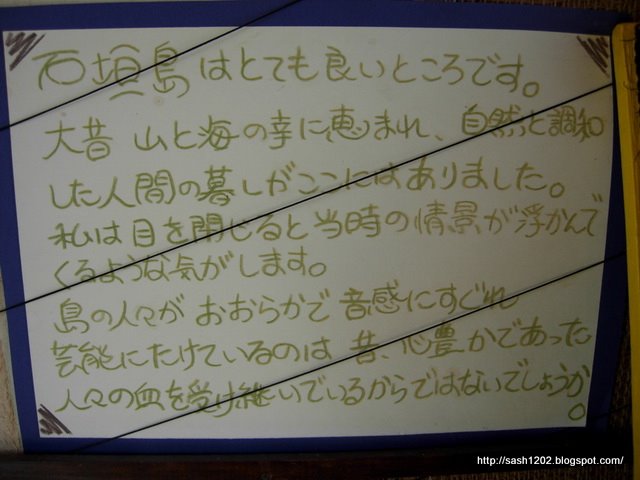 石垣島はとても良いところです。
大昔 山と海の幸に恵まれ、自然と調和
した人間の暮しがここにはありました。
私は目を閉じると当時の情景が浮かんで
くるような気がします。
島の人々がおおらかで 音感にすぐれ
芸能にたけているのは 昔、心豊かであった
人々の血を受け継いでいるからではないでしょうか。
http://sash1202.blogspot.com/